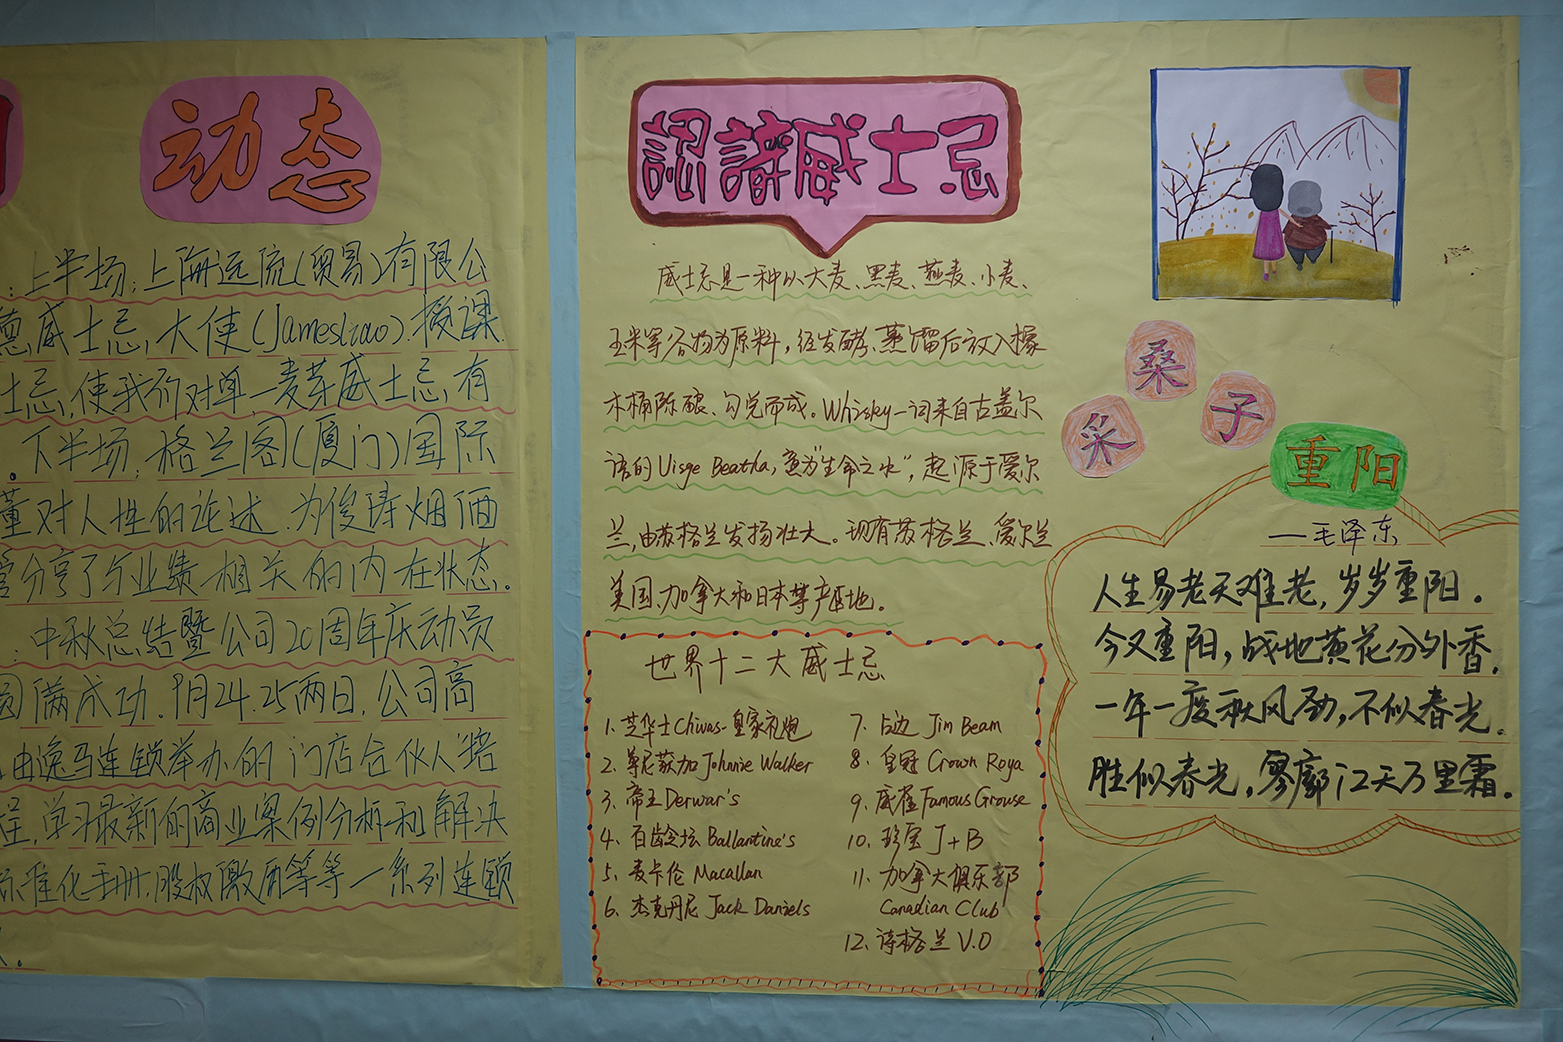 动态
：上半场：上海远流(贸易)有限公
德威士忌,大使(Jamesliao).授课.
士忌,使我们对单一麦芽威士忌,有
。下半场,格兰阁(厦门)国际
董对人性的论述.为俊涛烟酒
分享了与业绩相关的内在状态.
：中秋总结暨公司20周年庆动员
圆满成功.9月24.25两日,公司高
由逸马连锁举办的"门店合伙人"
程,学习最新的商业案例分析和解决
标准化手册,股权激励等等一系列连锁
認識威士忌
威士忌是一种以大麦、黑麦、燕麦、小麦、
玉米等谷物为原料，经发酵、蒸馏后放入橡
木桶陈酿、勾兑而成。Whisky一词来自古盖尔
语的Uisge Beatha,意为"生命之水"，起源于爱尔
兰,由苏格兰发扬壮大。现有苏格兰、爱尔兰
美国,加拿大和日本等产区地。
世界十二大威士忌
1、芝华士Chivas-皇家礼炮
2、尊尼获加Johnnie Walker
3、帝王Derwar's
4、百龄坛 Ballantine's
5、麦卡伦 Macallan
6、杰克丹尼 Jack Daniels
7、占边 Jim Beam
8、皇冠 Crown Roya
9、威雀 Famous Grouse
10、珍宝 J+B
11、加拿大俱乐部
Canadian Club
12、诗格兰 V.O
采桑子
重阳
—毛泽东
人生易老天难老,岁岁重阳。
今又重阳，战地黄花分外香.
一年一度秋风劲,不似春光.
胜似春光,寥廓江天万里霜.